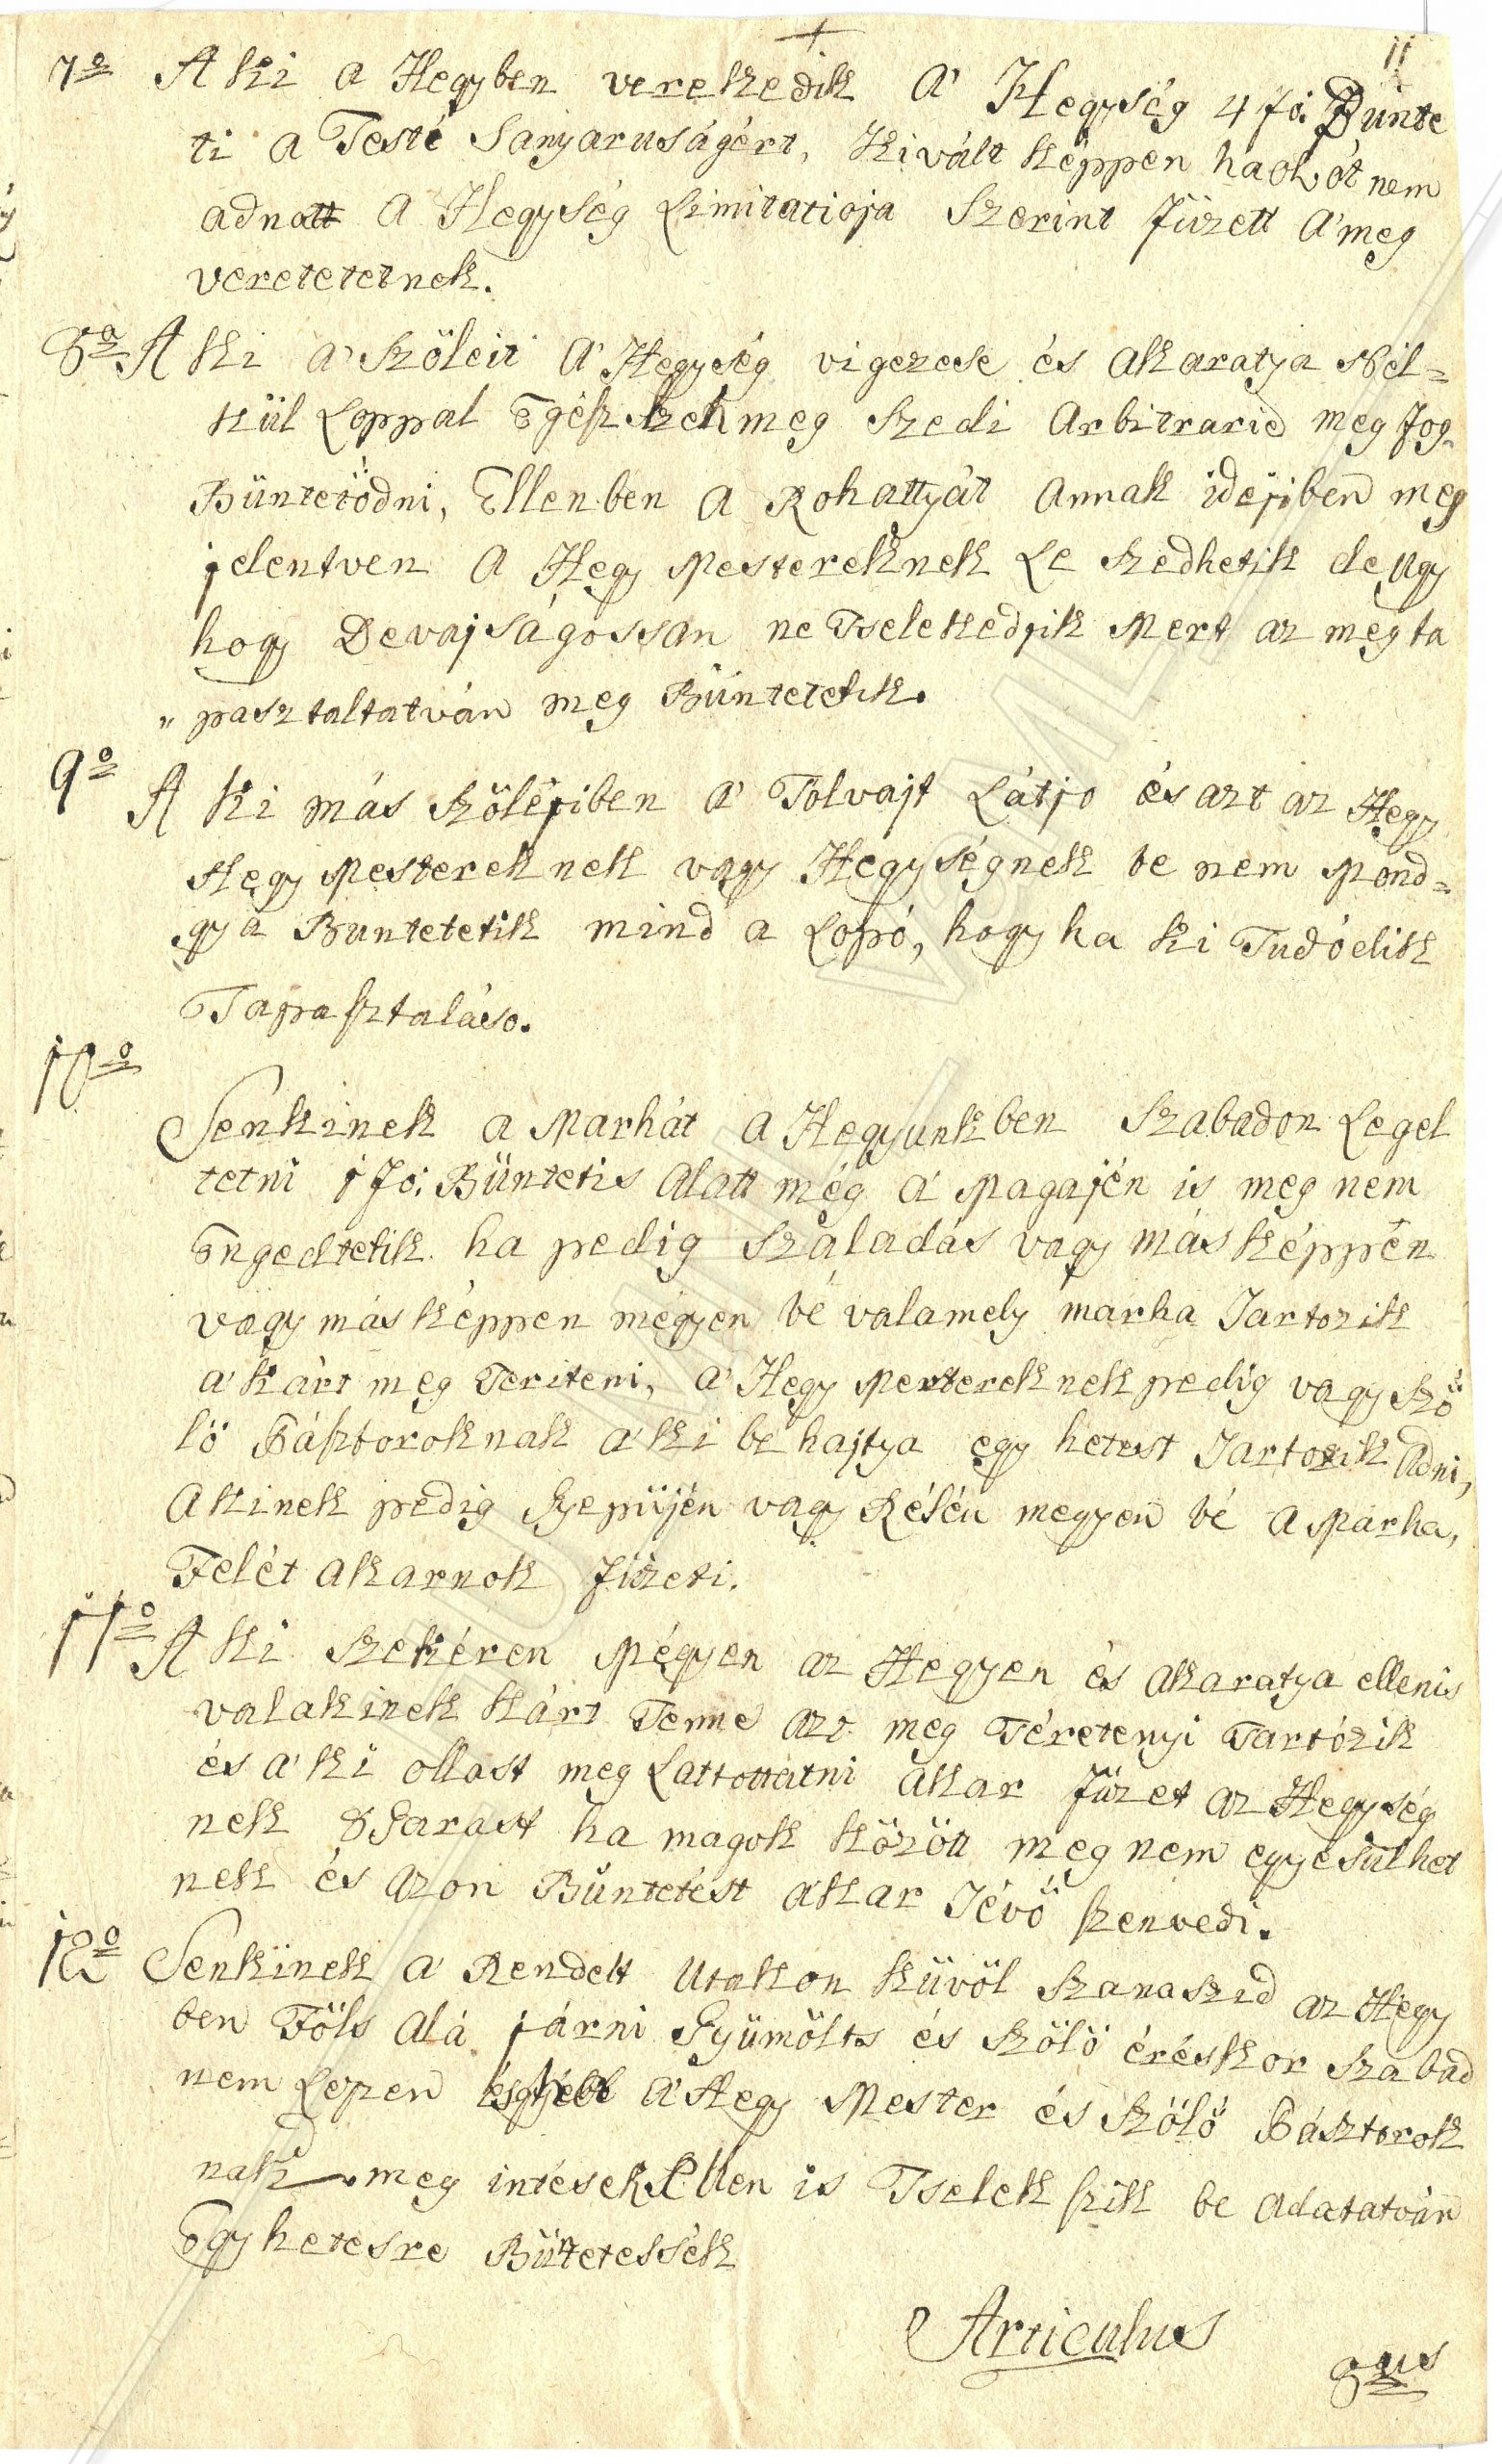 11
7o A ki a Hegyben verekedik A' Hegység 4 fó: Bünte
ti a Testé Sanyaruságért, kivált képpen ha okót nem
adnatt A Hegység Limitatioja Szerint füzett A' meg
veretetetnek.
8o A ki a' Szöleit A' Hegység vigezese és akaratya Nél=
kül Loppal Egész meg szedi Arbitrarie meg fog
Büntetödni, Ellenben a Rohattyát Annak idejiben meg
jelentven A Hegy Mestereknek Le szedhetik de ugy
hogy Devajságossan ne Tselekedjik Mert az meg ta
" pasztaltatván meg Büntetetik.
9o A ki más Szölejiben a' Tolvajt Látjo és azt az Hegy
Hegy Mestereknek vagy Hegységnek be nem Mond=
gya Buntetetik mind a Lopó, hogy ha ki Tudódik
Tapasztaláso.
10o
Senkinek a Marhát a Hegyunkben Szabadon Legel
tetni 1 fó: Büntetis Alatt még a' Magaján is meg nem
Engedtetik. ha pedig Szaladás vagy más képpen
vagy más képpen mégyen bé valamely marha Tartozik
a' kárt meg Teriteni, a' Hegy Mestereknek pedig vagy Szö
lö Pásztoroknak a' ki be hajtya egy hetest Tartozik Adni,
Akinek pedig Gyepüjén vagy Résén megyen bé a Marha,
Felét akarnok füzeti.
11o A ki Szekéren Mégyen az Hegyen és akaratya ellenis
valakinek kárt Tenne azt meg Téretenyi Tartózik
és a' ki ollast meg Lattottatni akar füzet az Hegység
nek 8 Garast ha magok között meg nem egyesülhet
nek és azon Büntetést akar Tévö szenvedi.
12o Senkinek a' Rendelt Utakon küvöl Szanaszid az Hegy
ben Föls Alá járni Gyümölts és Szölö éréskor Szabad
nem Lezen a' Hegy Mester és Szölö Pásztorok
nak meg intések Ellen is Tselekszik be Adatatván
Egy hetesre Bütetessék
Articulus
8us